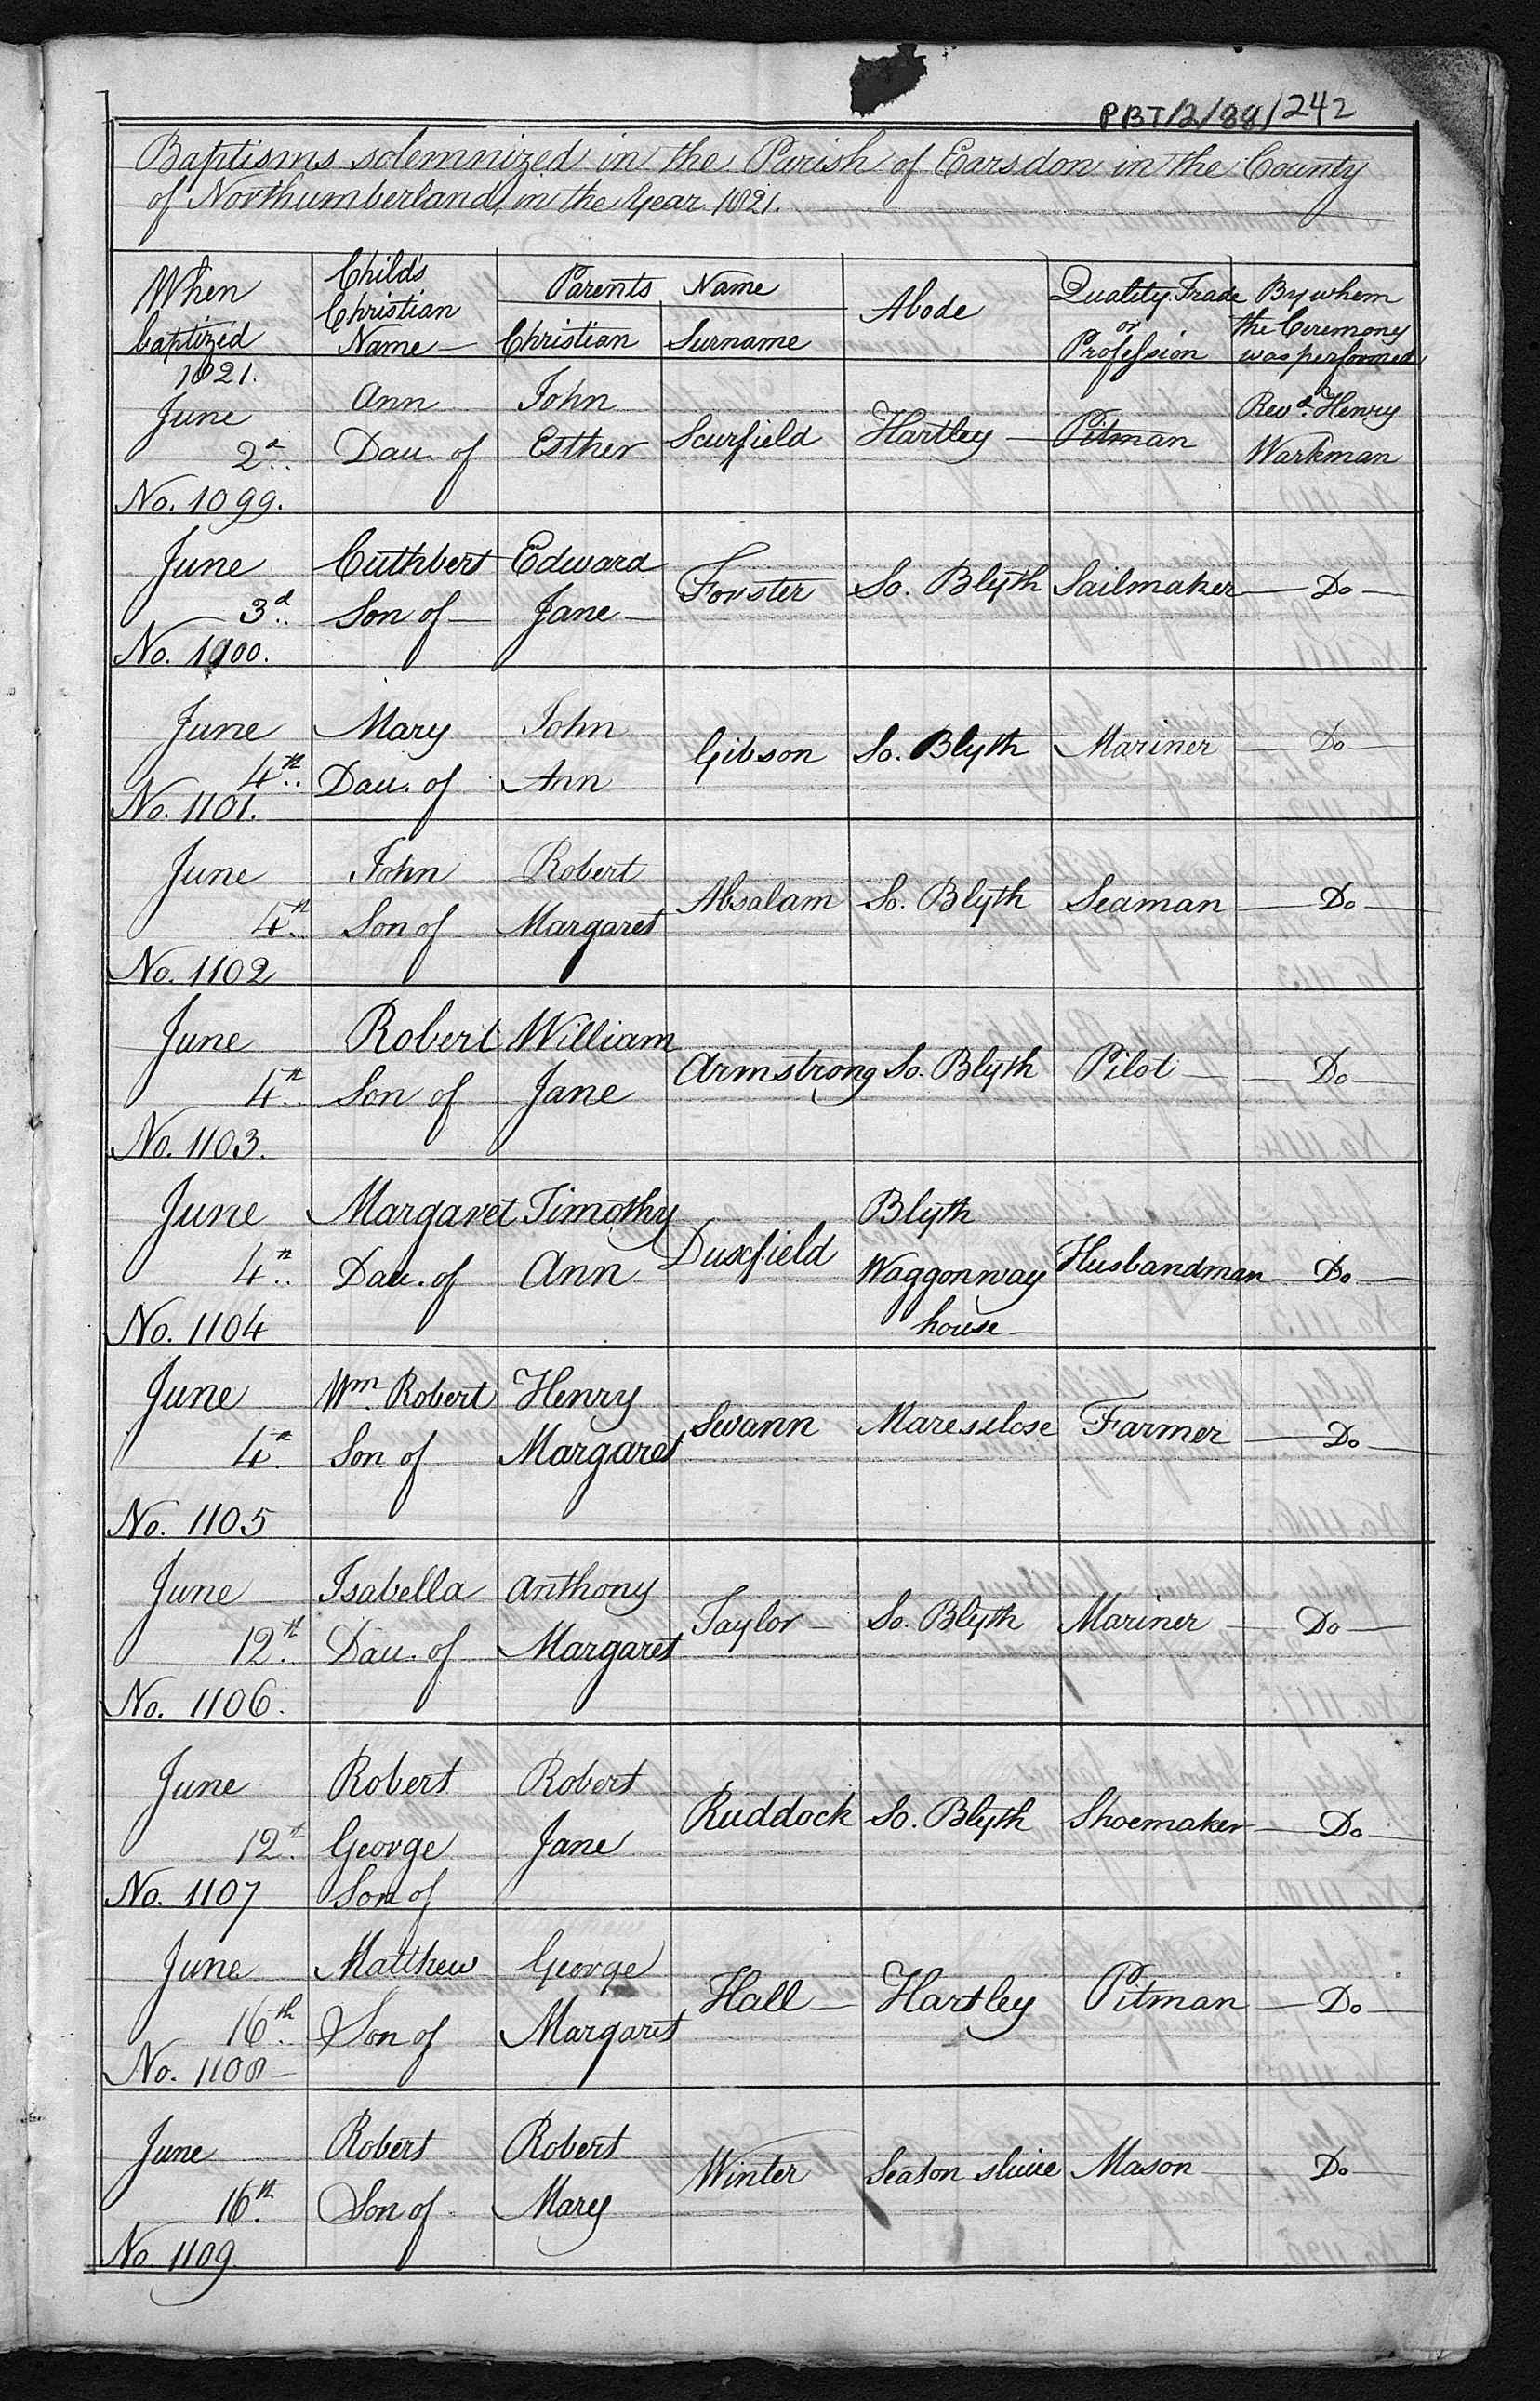 PBT/2/88/242
Baptisms solemnized in the Parish of Earsdon in the County
of Northumberland, in the Year 1821.
When baptized
Child's Christian Name
Parents Name
Christian
Surname
Abode
Quality, Trade or Profession
By whom the Ceremony was performed
1821.
June 2d.
No. 1099.
Ann
Dau. of
John
Esther
Scurfield
Hartley
Pitman
Revd. Henry
Warkman
June 3d.
No. 1100.
Cuthbert
Son of
Edward
Jane
Forster
So. Blyth
Sailmaker
Do
June 4th.
No. 1101.
Mary
Dau. of
John
Ann
Gibson
So. Blyth
Mariner
Do
June 4th.
No. 1102
John
Son of
Robert
Margaret
Absalam
So. Blyth
Seaman
Do
June 4th.
No. 1103.
Robert
Son of
William
Jane
Armstrong
So. Blyth
Pilot
Do
June 4th.
No. 1104
Margaret
Dau. of
Timothy
Ann
Duxfield
Blyth
Waggonway
house
Husbandman
Do
June 4th.
No. 1105
Wm. Robert
Son of
Henry
Margaret
Swann
Maresclose
Farmer
Do
June 12th.
No. 1106.
Isabella
Dau. of
Anthony
Margaret
Taylor
So. Blyth
Mariner
Do
June 12th.
No. 1107
Robert
George
Son of
Robert
Jane
Ruddock
So. Blyth
Shoemaker
Do
June 16th.
No. 1108
Matthew
Son of
George
Margaret
Hall
Hartley
Pitman
Do
June 16th.
No. 1109.
Robert
Son of
Robert
Mary
Winter
Seaton sluice
Mason
Do